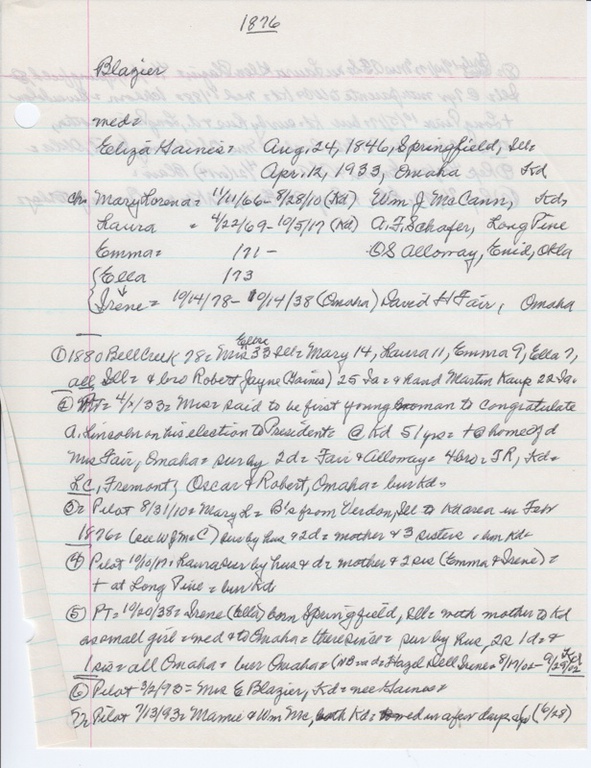 1876
Blazier
med=
Eliza Gaines= Aug. 24, 1846, Springfield, Ill=
Apr. 12, 1933, Omaha Kd
ch= Mary Lorena= 11/11/66-8/28/10 (Kd) Wm J McCann, Kd=
Laura = 4/22/69-10/5/17 (Kd) A.F. Schafer, Long Pine
Emma= /71- OS Alloway, Enid, Okla
Ella /73
Irene= 10/14/78-10/14/38 (Omaha) David H Fair, Omaha
① 1880 Bell Creek 78= Mrs 33 Ill= Mary 14, Laura 11, Emma 9, Ella 7,
all Ill= & bro Robert Jayne (Gaines) 25 Ia= & hand Martin Kaup 22 Ia=
② PT= 4/ /33= Mrs= said to be first young woman to congratulate
A. Lincoln on his election to President= @ Kd 51 yrs= + @ home of d
Mrs Fair, Omaha= sur by 2d= Fair & Alloway= 4 bro= JR, Kd=
LC, Fremont; Oscar & Robert, Omaha= bur Kd=
③= Pilot 8/31/10= Mary L= B's from Verdon, Ill to Kd area in Febr
1876= (see WJMcC) sur by hus & 2d= mother & 3 sisters = bur Kd=
④ Pilot 10/10/17= Laura sur by hus & d= mother & 2 sis (Emma & Irene)=
+ at Long Pine = bur Kd
⑤ PT= 10/20/38= Irene (Ella) born Springfield, Ill= with mother to Kd
as small girl = med & to Omaha= there since= sur by hus, 2s 1d= &
1 sis= all Omaha= bur Omaha= (NB= nd= Hazel Dell Irene= 8/17/02-9/29/02
⑥ Pilot 3/2/93= Mrs E Blazier, Kd= nee Gaines=
7= Pilot 7/13/93= Mamie & Wm Mc, both Kd= med in a few days ago (6/28)